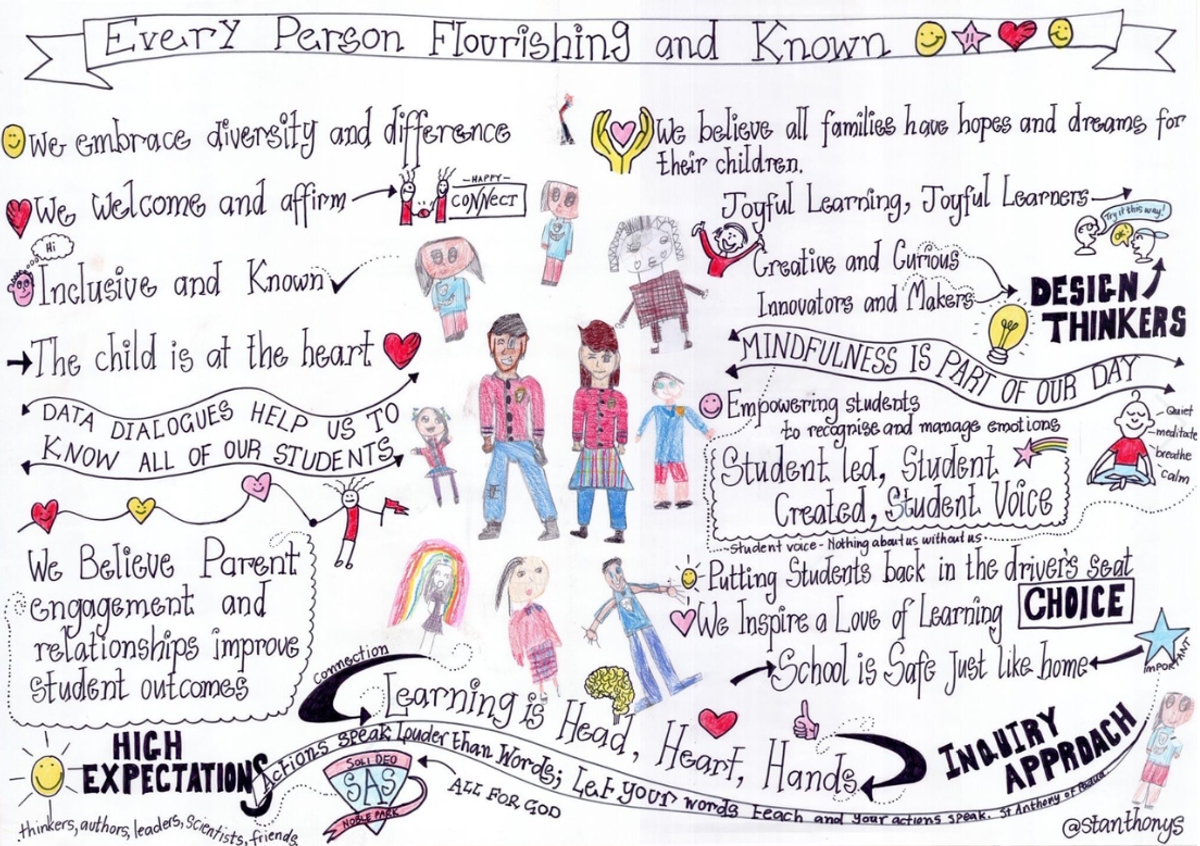 Every Person Flourishing and Known
We embrace diversity and difference
We welcome and affirm
-HAPPY-
CONNECT
Hi
Inclusive and Known
The child is at the heart
DATA DIALOGUES HELP US TO
KNOW ALL OF OUR STUDENTS
We Believe Parent
engagement and
relationships improve
student outcomes
HIGH
EXPECTATIONS
thinkers, authors, leaders, scientists, friends
We believe all families have hopes and dreams for
their children.
Joyful Learning, Joyful Learners
Try it this way!
Creative and Curious
Innovators and Makers
DESIGN
THINKERS
MINDFULNESS IS PART OF OUR DAY
Empowering students
to recognise and manage emotions
Quiet
meditate
breathe
Calm
Student led, Student
Created, Student Voice
Student voice - Nothing about us without us
Putting Students back in the driver's seat
We Inspire a Love of Learning
CHOICE
School is Safe Just like home
IMPORTANT
connection
Learning is Head, Heart, Hands
INQUIRY
APPROACH
Actions speak Louder than Words; Let your words teach and your actions speak. St Anthony of Padua
SOLI DEO
SAS
NOBLE PARK
ALL FOR GOD
@stanthonys